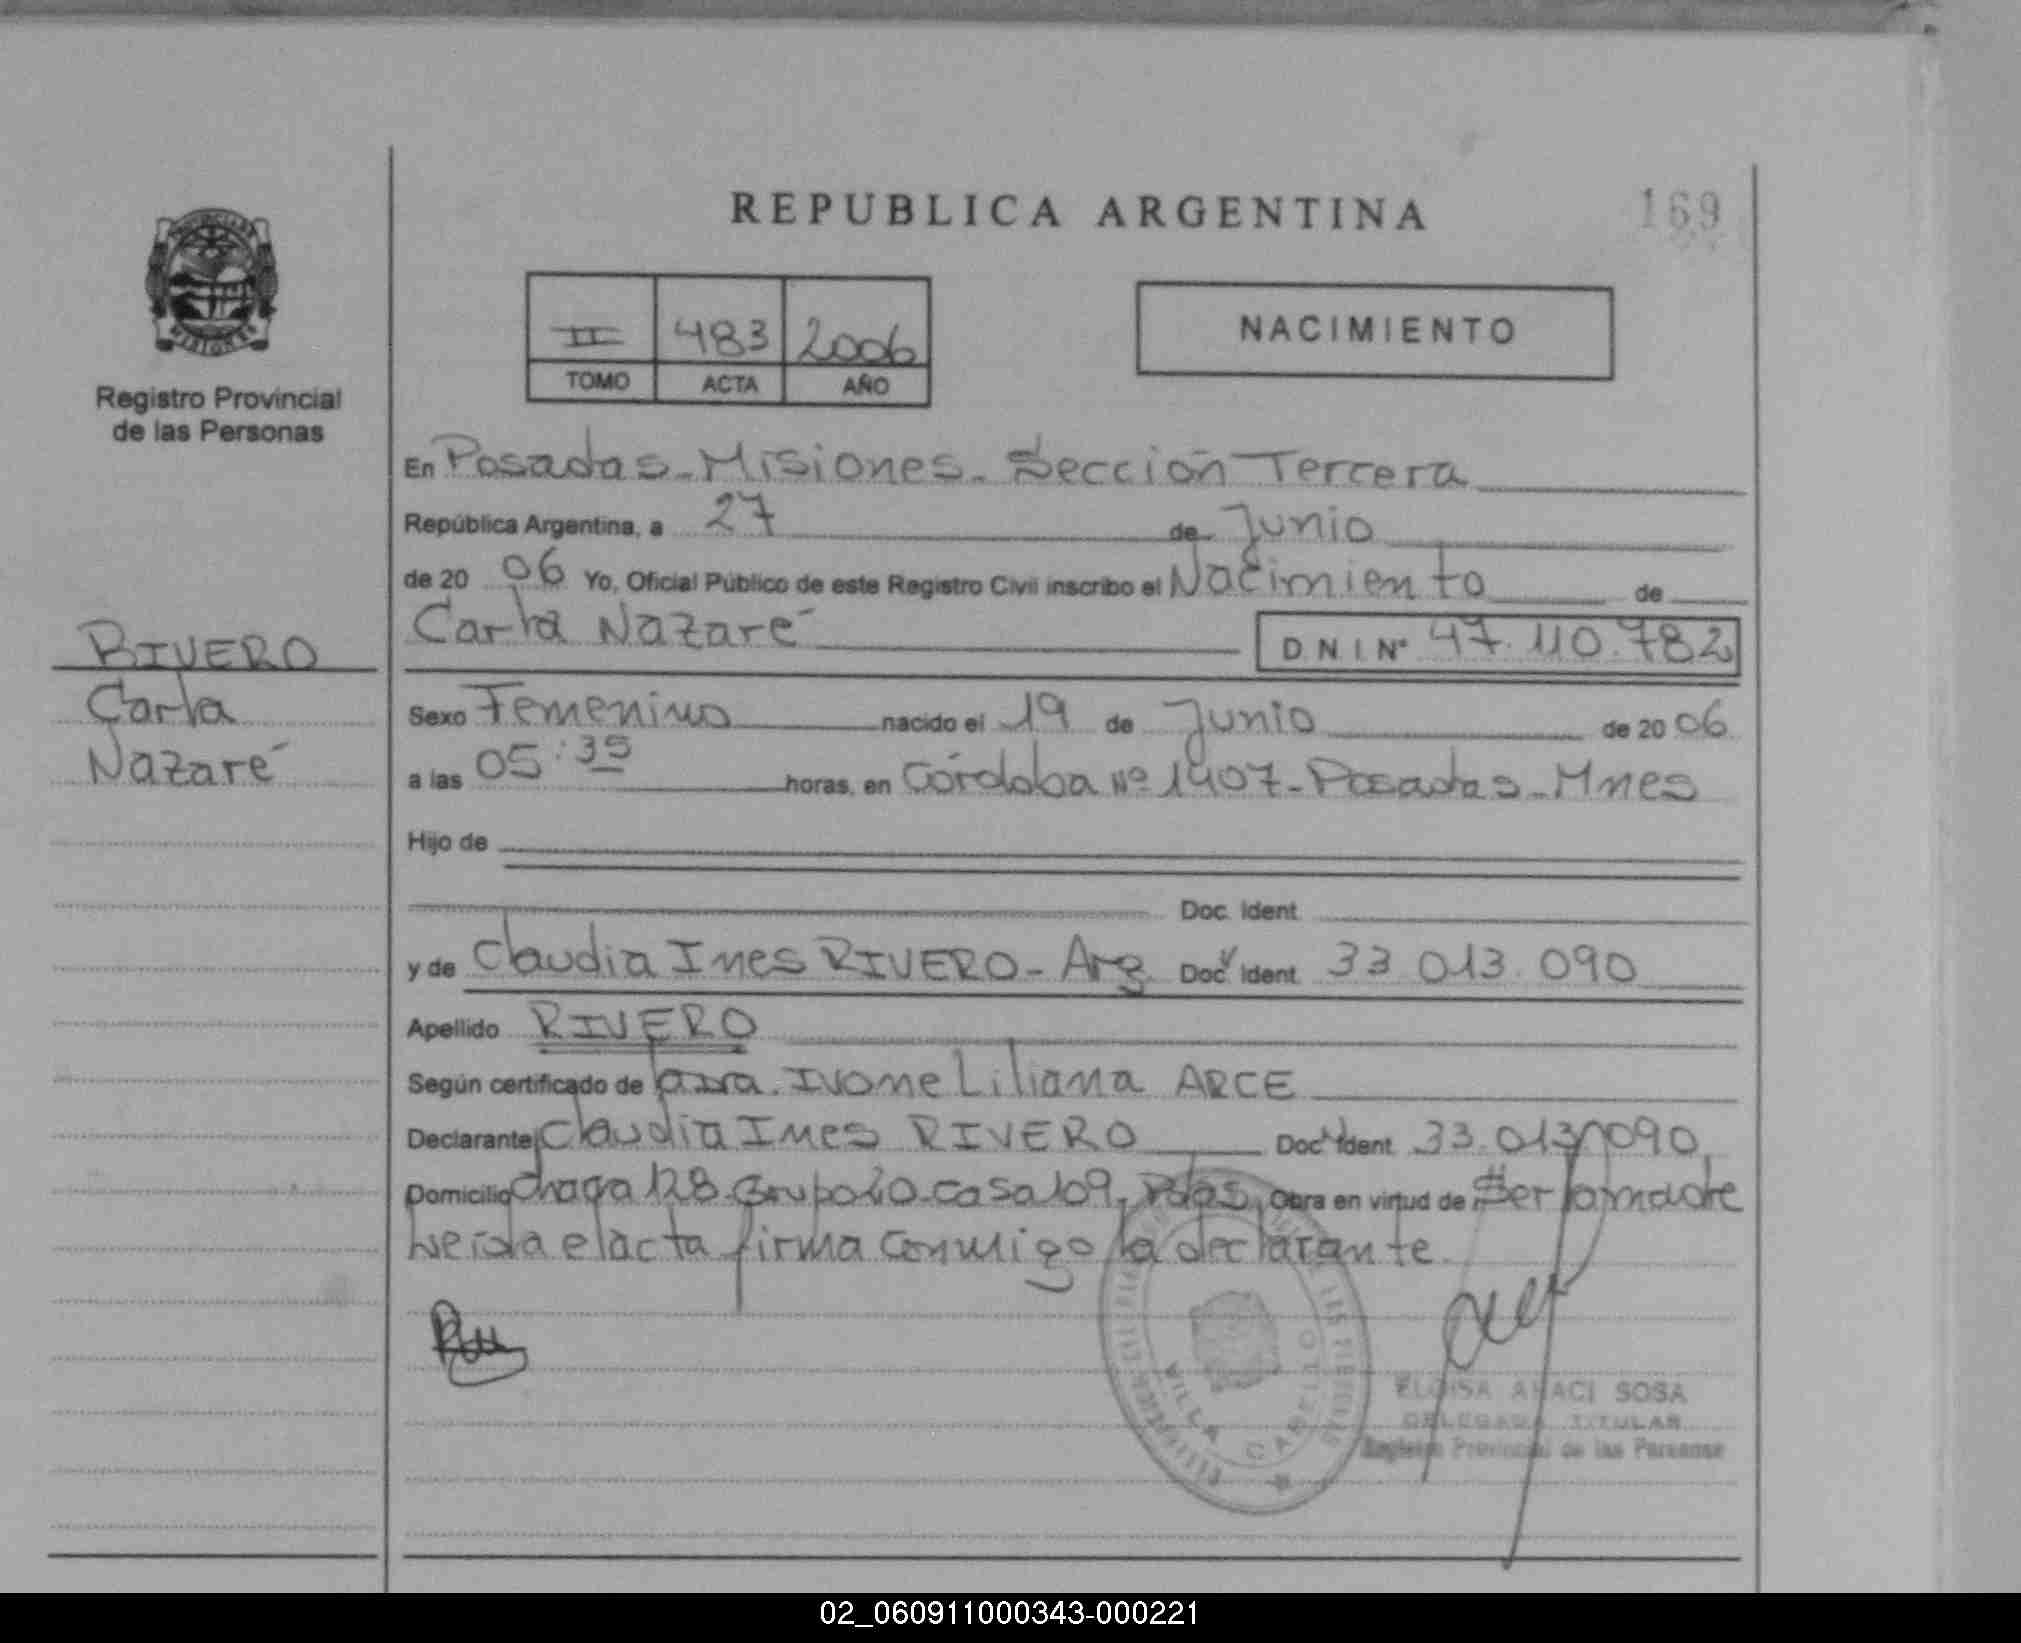 REPUBLICA ARGENTINA
169
PROVINCIA
MISIONES
Registro Provincial
de las Personas
II 483 2006
TOMO ACTA AÑO
NACIMIENTO
En Posadas - Misiones - Sección Tercera
República Argentina, a 27 de Junio
de 20 06 Yo, Oficial Público de este Registro Civil inscribo el Nacimiento de
Carla Nazaré D N I Nº 47.110.782
RIVERO
Carla
Nazaré
Sexo Femenino nacido el 19 de Junio de 20 06
a las 05:35 horas, en Córdoba Nº 1907 - Posadas - Mnes
Hijo de
Doc. Ident.
y de Claudia Ines RIVERO - Arg Doc. Ident. 33 013.090
Apellido RIVERO
Según certificado de la Dra. Ivone Liliana ARCE
Declarante Claudia Ines RIVERO Doc. Ident. 33.013.090
Domicilio Chacra 128 Grupo 20 casa 109, Pdas, Obra en virtud de Ser la madre
Leida el acta firma conmigo la declarante.
VILLA CABELLO
ELOISA ARACI SOSA
DELEGADA TITULAR
Registro Provincial de las Personas
02_060911000343-000221